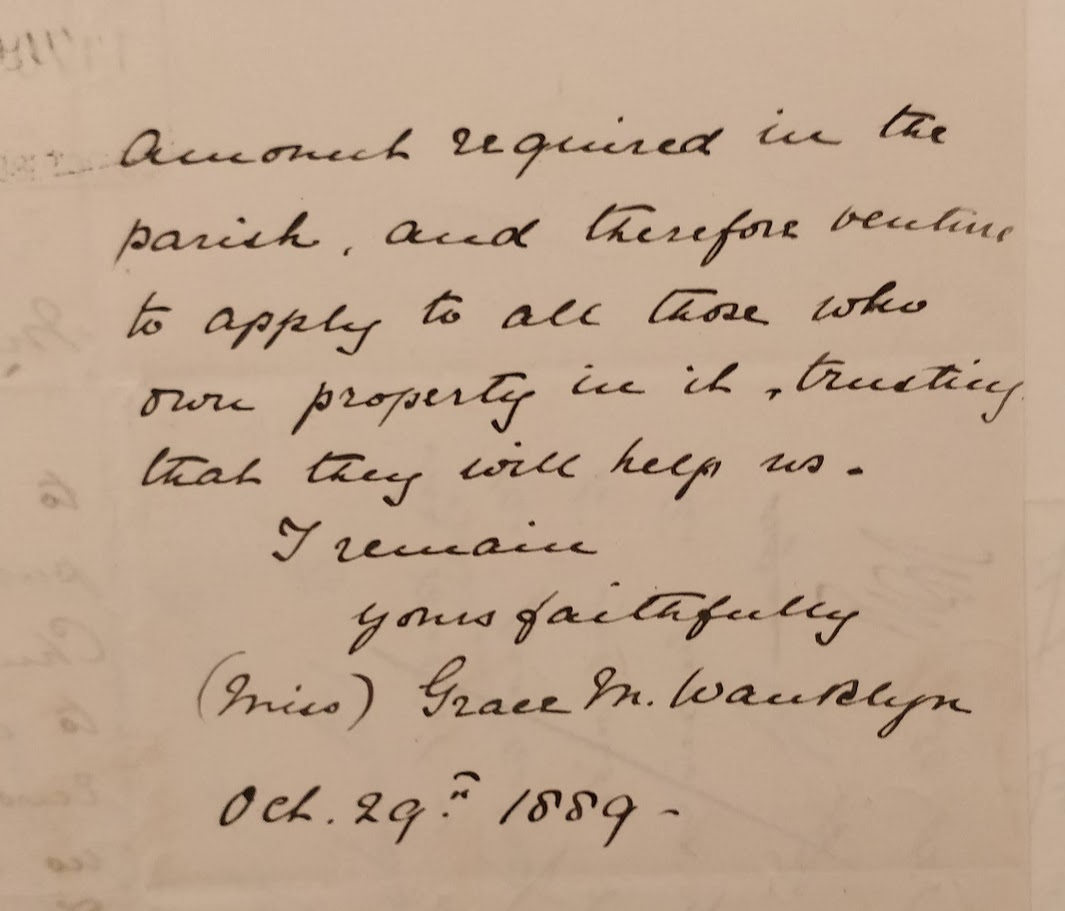 Amount required in the
parish, and therefore venture
to apply to all those who
own property in it, trusting
that they will help us.
I remain
yours faithfully
(Miss) Grace M. Wanklyn
Oct. 29th 1889 -